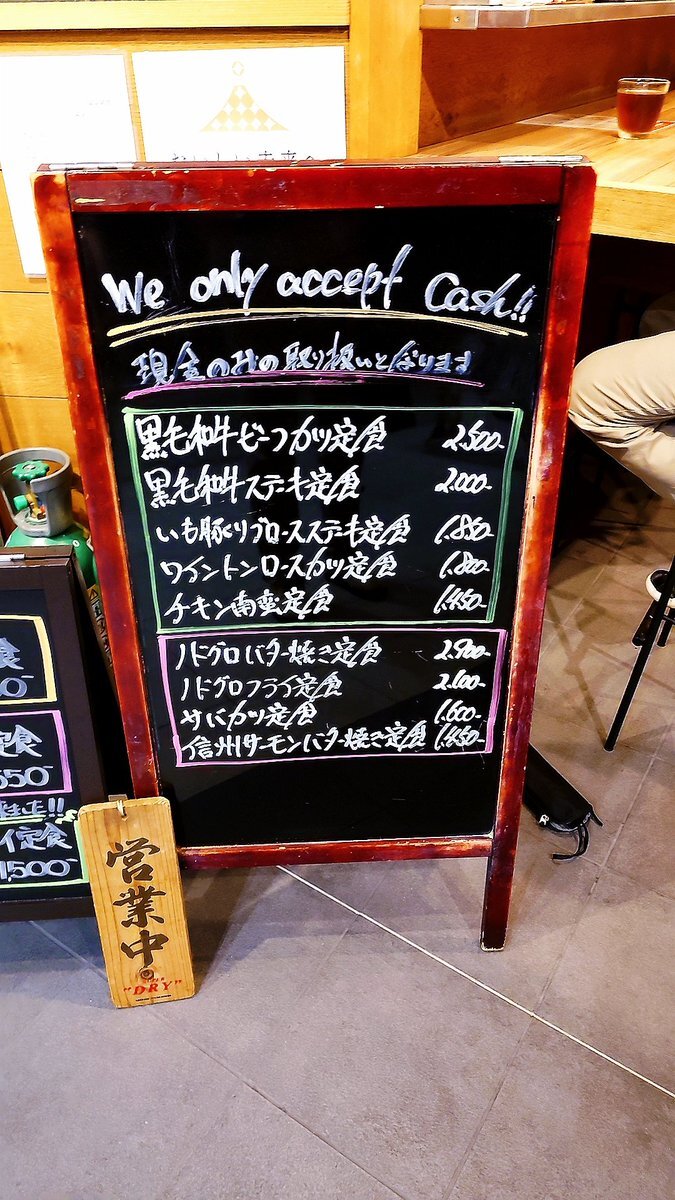 We only accept Cash!!
現金のみの取り扱いとなります
黒毛和牛ビーフカツ定食 2.500-
黒毛和牛ステーキ定食 2.000-
いも豚リブロースステーキ定食 1.850-
ワイントンロースカツ定食 1.800-
チキン南蛮定食 1.450-
ノドグロバター焼き定食 2.900-
ノドグロフライ定食 2.600-
サバカツ定食 1.600-
信州サーモンバター焼き定食 1.450-
定食
550-
イ定食
1,500-
営業中
"DRY"